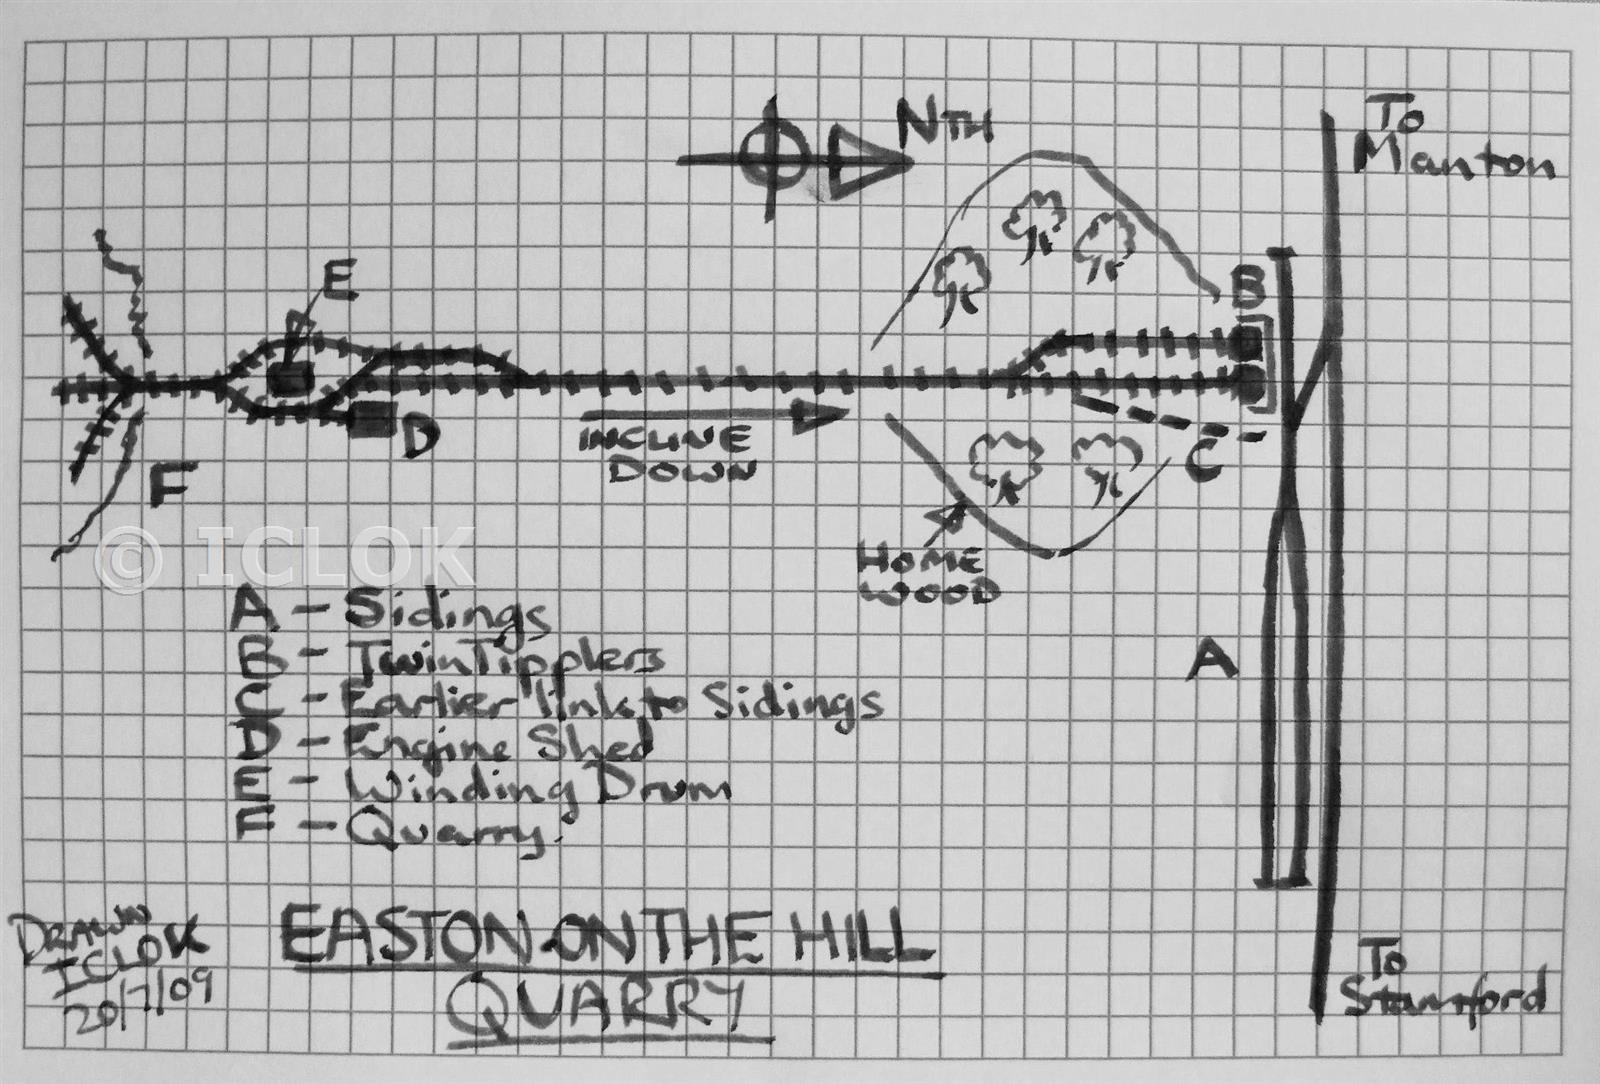 To
Manton
NTH
B
E
D
INCLINE
DOWN
C
F
© ICLOK
HOME
WOOD
A
A - Sidings
B - Twin Tipplers
C - Earlier link to Sidings
D - Engine Shed
E - Winding Drum
F - Quarry.
DRAWN
ICLOK
20/7/09
EASTON-ON THE HILL
QUARRY
To
Stamford